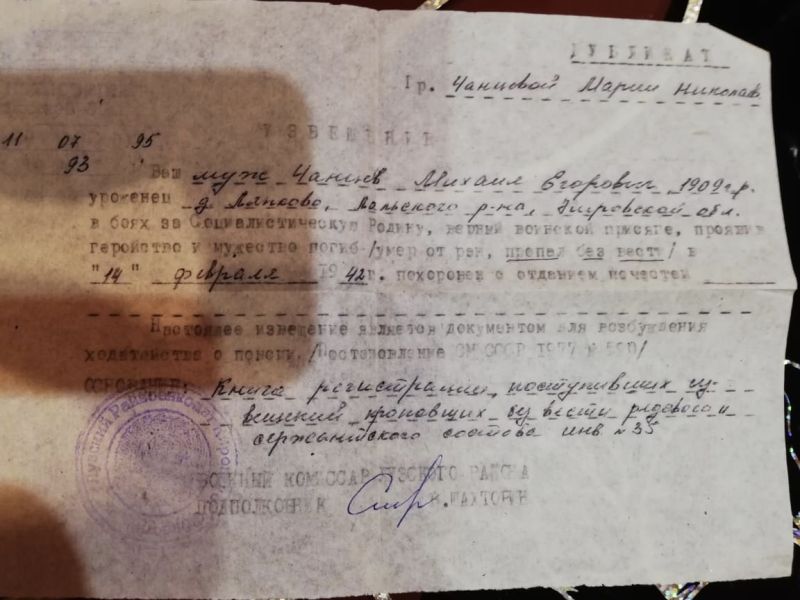 ДУБЛИКАТ
Гр. Чанцевой Марии Николаев
ИЗВЕЩЕНИЕ
11 07 95
93
Ваш муж Чанцев Михаил Егорович 1909 г.р.
уроженец д. Ляпково, Лальского р-на, Кировской обл.
в боях за Социалистическую Родину, верный воинской присяге, проявив
геройство и мужество погиб /умер от ран, пропал без вести/ в
"14" февраля 1942г. похоронен с отданием почестей
Настоящее извещение является документом для возбуждения
ходатайства о пенсии. /Постановление СМ СССР 1977 №590/
ОСНОВАНИЕ: Книга регистрации поступивших из-
вещений пропавших без вести рядового и
сержантского состава инв №35
ВОЕННЫЙ КОМИССАР ЛУЗСКОГО РАЙОНА
ПОДПОЛКОВНИК В.ШАХТОРИН